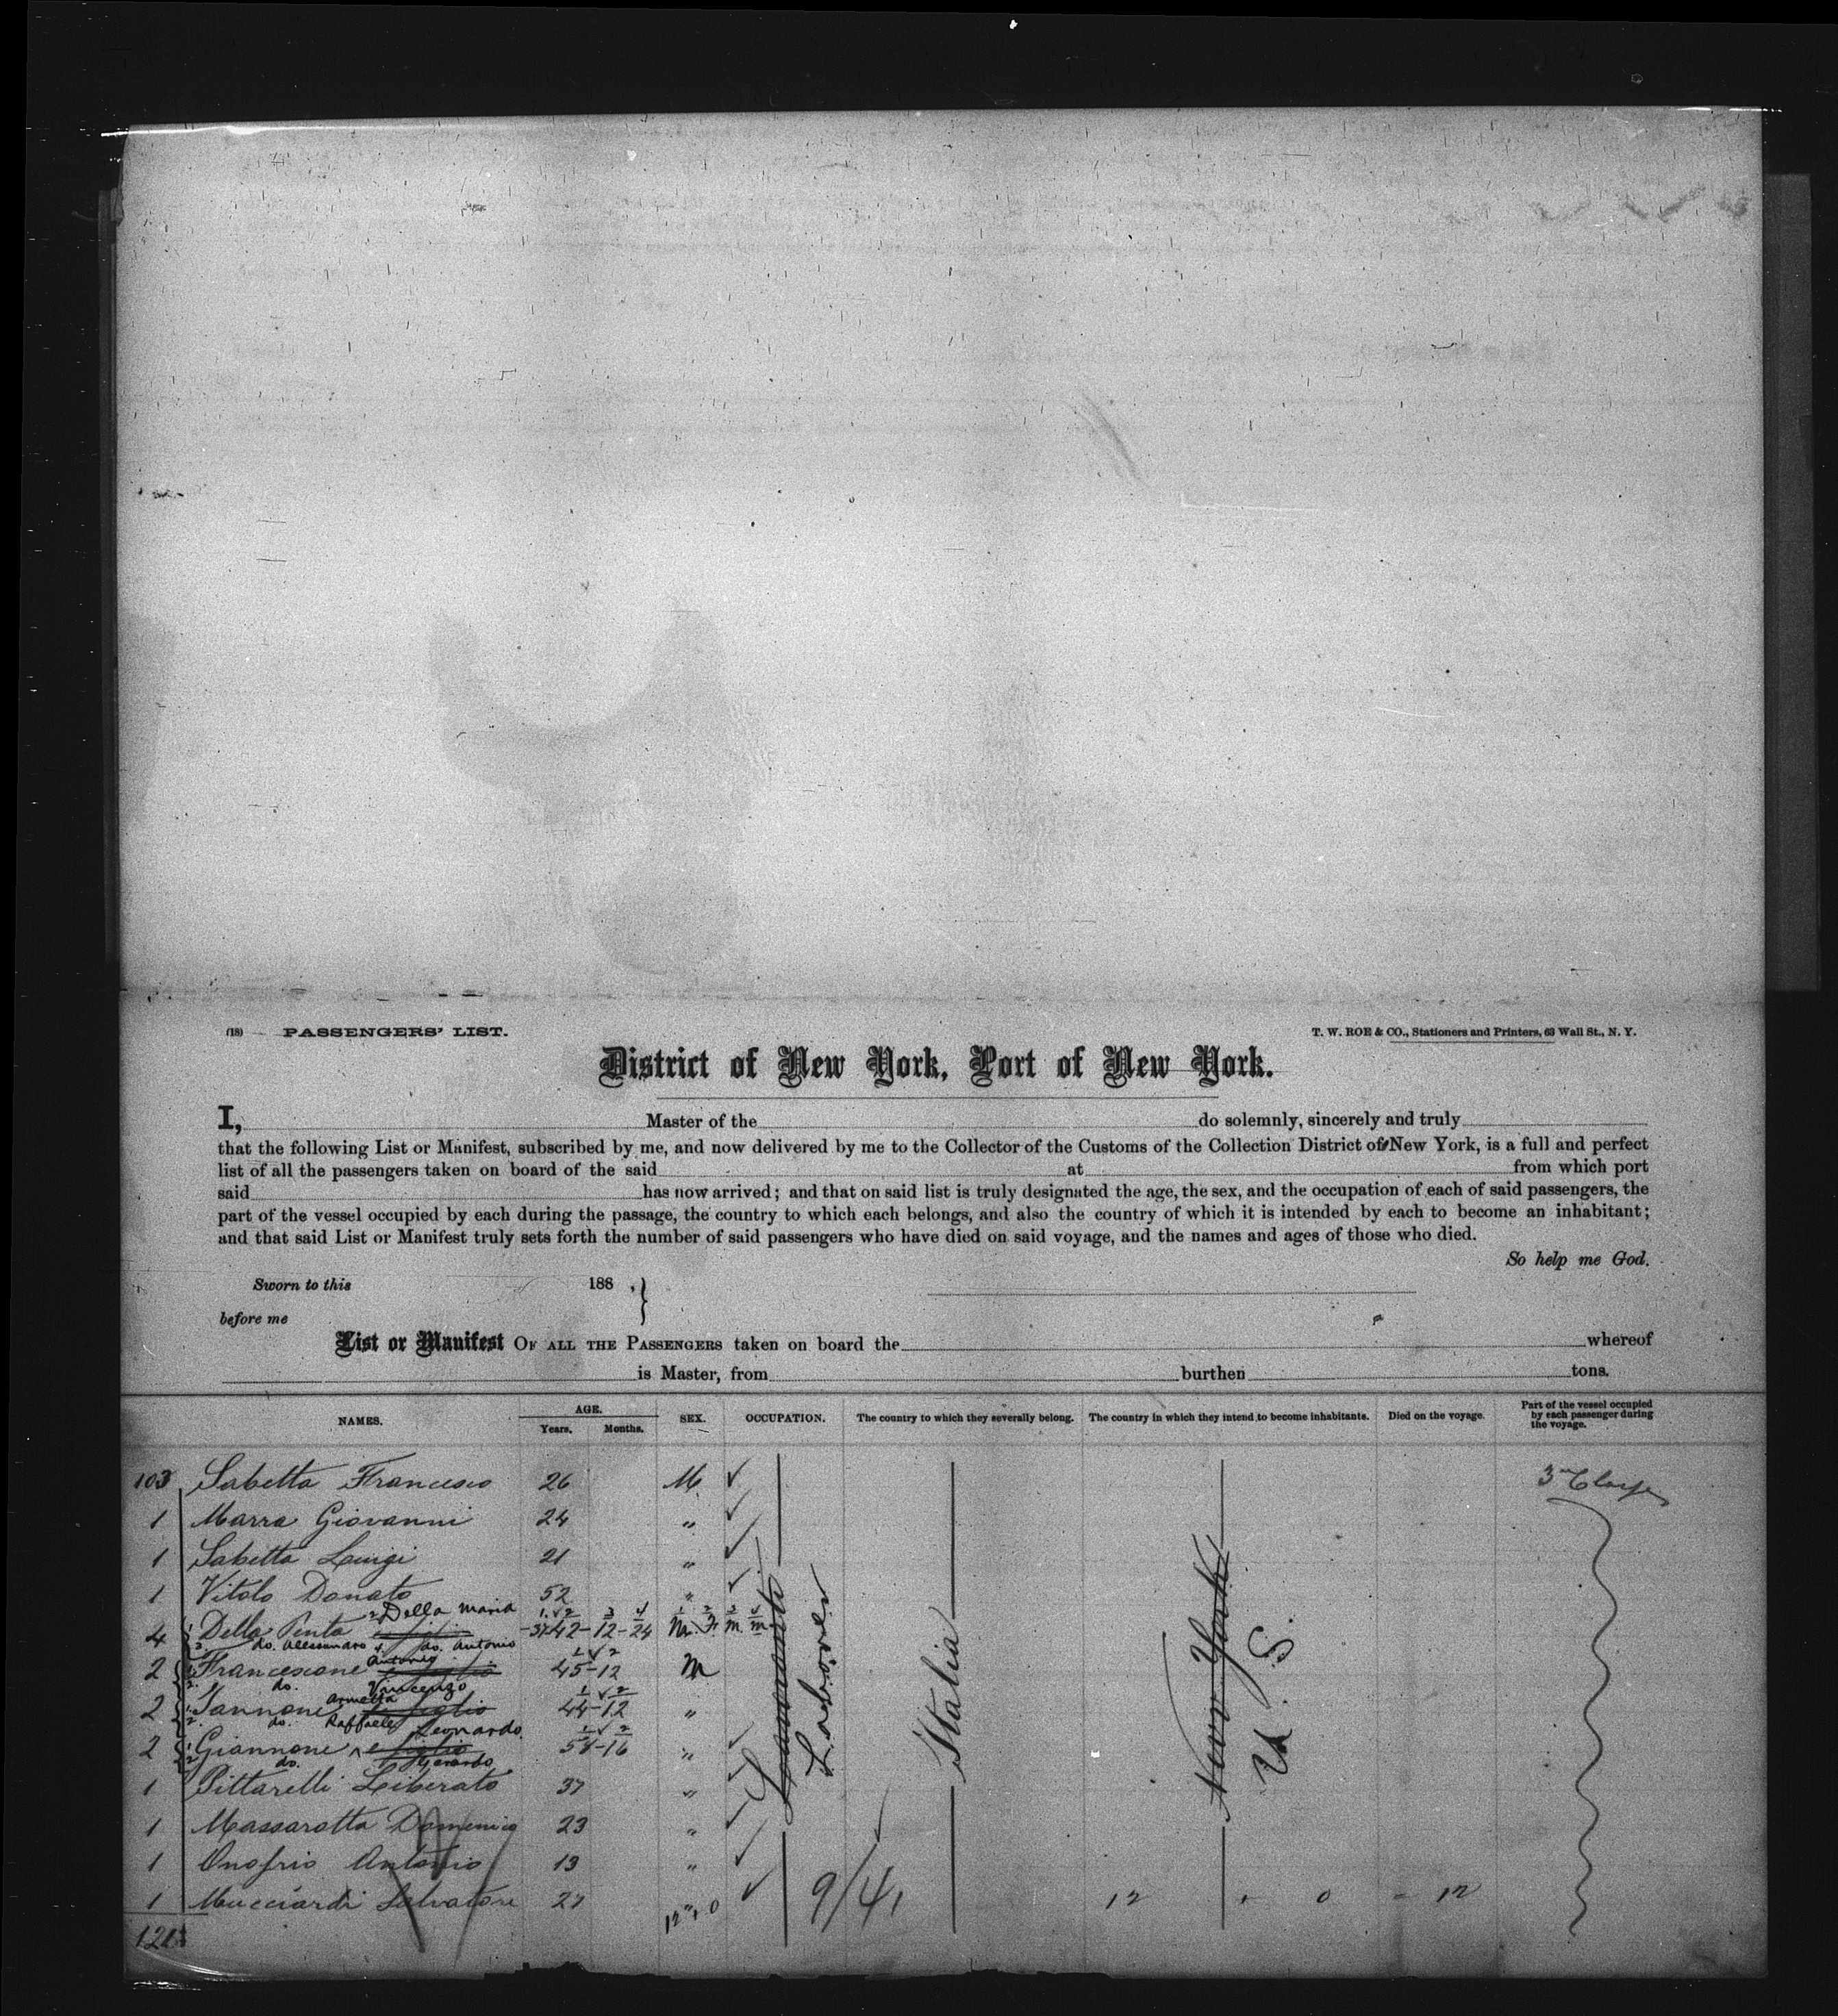 (18) PASSENGERS' LIST. T. W. ROE & CO., Stationers and Printers, 63 Wall St., N. Y.
District of New York, Port of New York.
I, Master of the do solemnly, sincerely and truly
that the following List or Manifest, subscribed by me, and now delivered by me to the Collector of the Customs of the Collection District of New York, is a full and perfect
list of all the passengers taken on board of the said at from which port
said has now arrived; and that on said list is truly designated the age, the sex, and the occupation of each of said passengers, the
part of the vessel occupied by each during the passage, the country to which each belongs, and also the country of which it is intended by each to become an inhabitant;
and that said List or Manifest truly sets forth the number of said passengers who have died on said voyage, and the names and ages of those who died.
So help me God.
Sworn to this 188 , }
before me
List or Manifest OF ALL THE PASSENGERS taken on board the whereof
is Master, from burthen tons.
NAMES. AGE. Years. Months. SEX. OCCUPATION. The country to which they severally belong. The country in which they intend to become inhabitants. Died on the voyage. Part of the vessel occupied by each passenger during the voyage.
103 Sabetta Francesco 26 M. 3rd Class
1 Marra Giovanni 24 "
1 Sabetta Luigi 21 "
1 Vitolo Donato 52 "
2 Della Maria
4 Della Penta e figlio 37-42-12-24 M. F. M. M.
do. Alessandro 4. do. Antonio
Antonio
2 Francescone e figlio 45-12 M
do. Vincenzo
2 Iannone e figlio 44-12 "
do. Raffaele
Leonardo
2 Giannone e figlio 54-16 "
do. Gerardo
1 Pittarelli Liberato 37 "
1 Massarotta Domenico 23 "
1 Onofrio Antonio 19 "
1 Mucciardi Salvatore 27 "
121
Laborer
Italia
New York
U. S.
9/41
12 + 0 = 12